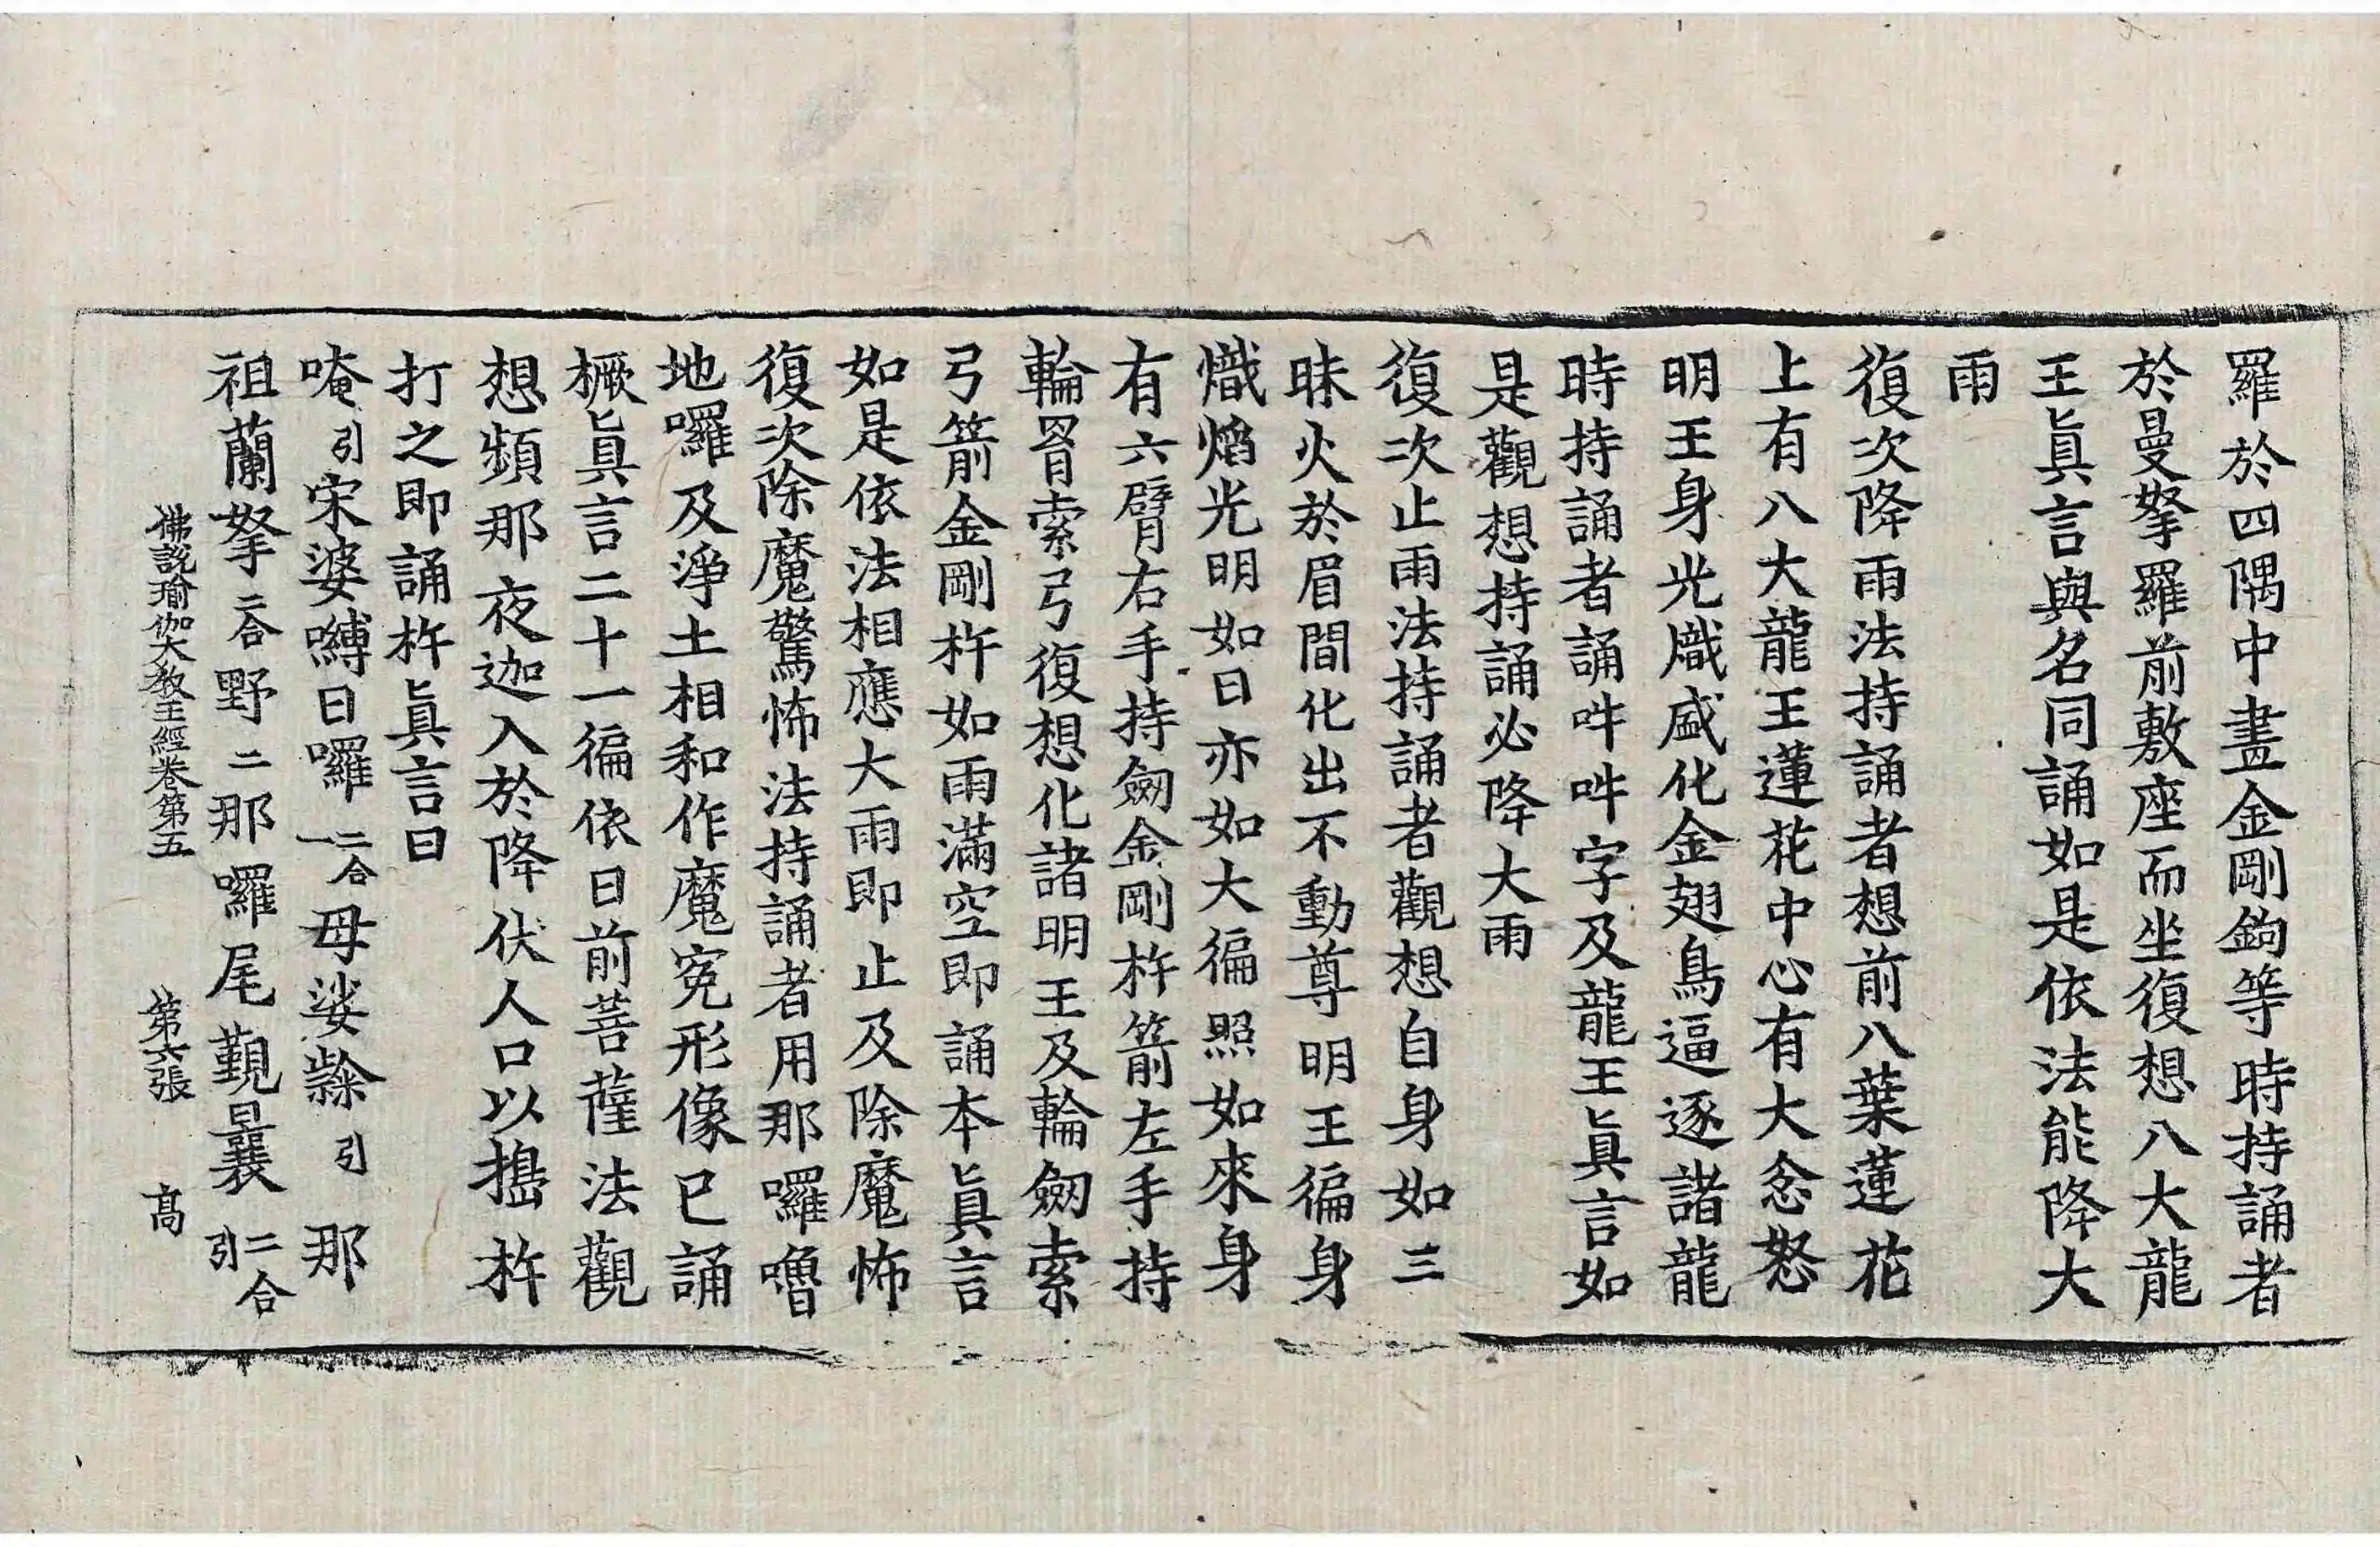 羅於四隅中畫金剛鉤等時持誦者
於曼拏羅前敷座而坐復想八大龍
王眞言與名同誦如是依法能降大
雨
復次降雨法持誦者想前八葉蓮花
上有八大龍王蓮花中心有大忿怒
明王身光熾盛化金翅鳥逼逐諸龍
時持誦者誦吽吽字及龍王眞言如
是觀想持誦必降大雨
復次止雨法持誦者觀想自身如三
昧火於眉間化出不動尊明王徧身
熾焰光明如日亦如大徧照如來身
有六臂右手持劒金剛杵箭左手持
輪罥索弓復想化諸明王及輪劒索
弓箭金剛杵如雨滿空即誦本眞言
如是依法相應大雨即止及除魔怖
復次除魔驚怖法持誦者用那囉嚕
地囉及淨土相和作魔寃形像已誦
橛眞言二十一徧依日前菩薩法觀
想頻那夜迦入於降伏人口以搗杵
打之即誦杵眞言曰
唵引宋婆嚩日囉二合一母娑㘑引那
祖蘭拏二合野二那囉尾覲曩二合引
佛說瑜伽大教王經卷第五 第六張 高